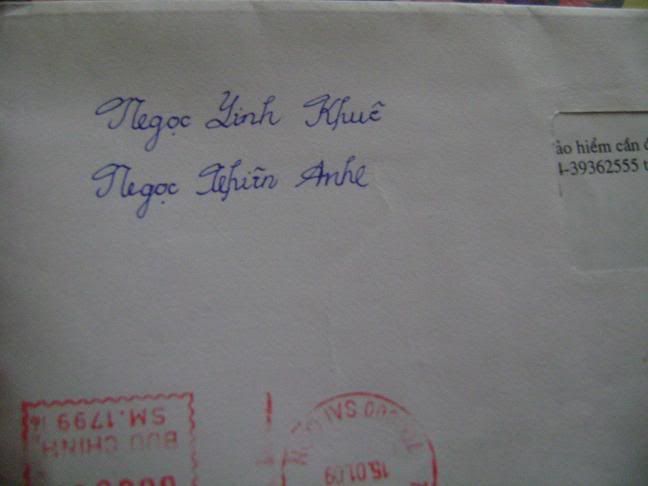 Ngọc Linh Khuê
Ngọc Thiên Anhe
ảo hiểm cần đ
4-39362555 t
SM.1799
BUU CHINH
15.01.09